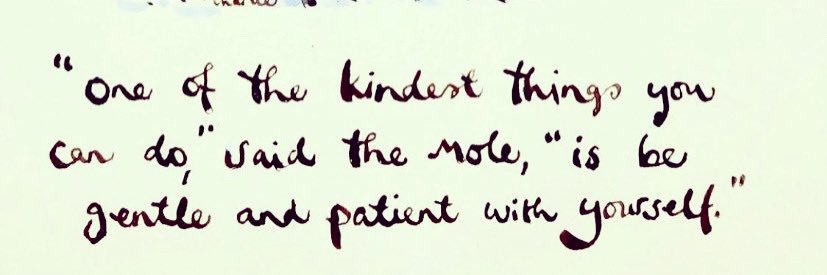 "one of the kindest things you
can do," said the mole, "is be
gentle and patient with yourself."